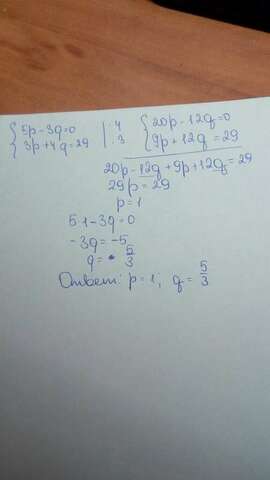 {5p-3q=0 | ·4 {20p-12q=0
{3p+4q=29 | ·3 {9p+12q=29
20p-12q+9p+12q=29
29p=29
p=1
5·1-3q=0
-3q=-5
q= 5/3
Ответ: p=1; q= 5/3